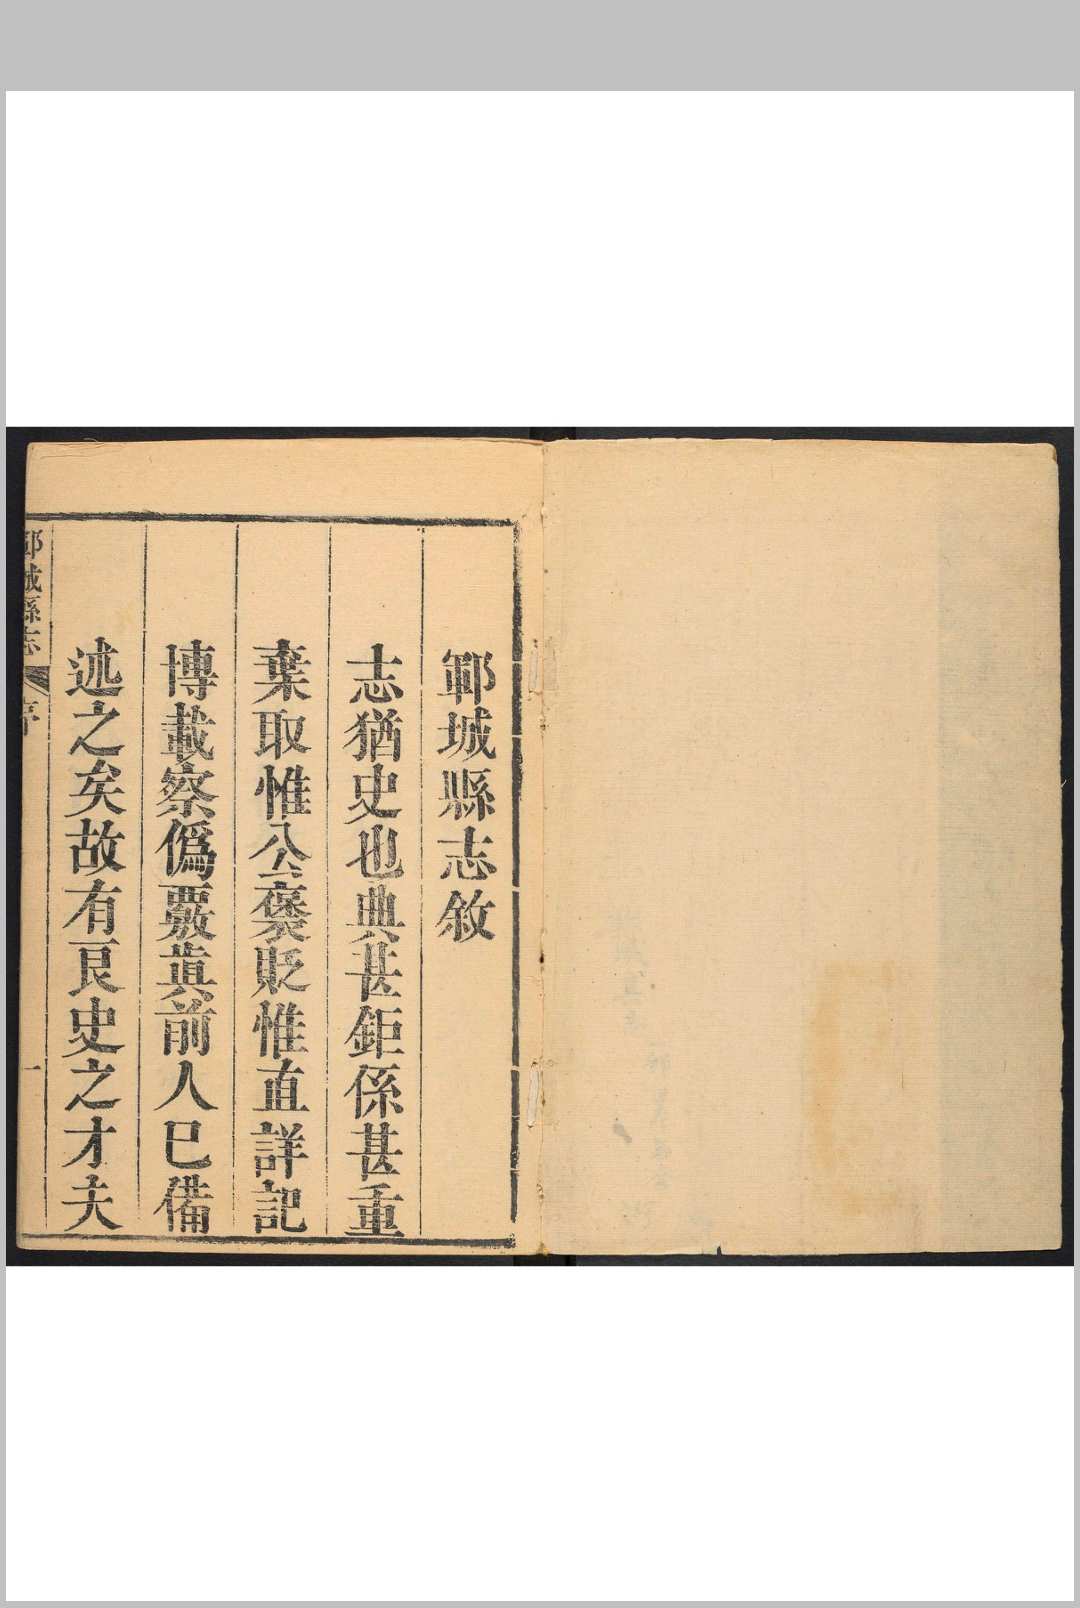 鄆城縣志敘
志猶史也典甚鉅係甚重
棄取惟公褒貶惟直詳記
博載察僞覈眞前人已備
述之矣故有良史之才夫
鄆城縣志 序 一